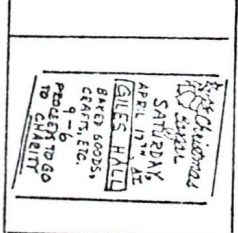 Christmas
SATURDAY,
APRIL 17TH AT
GILES HALL
BAKED GOODS,
CRAFTS, ETC.
9-6
PROCEEDS TO GO
TO CHARITY